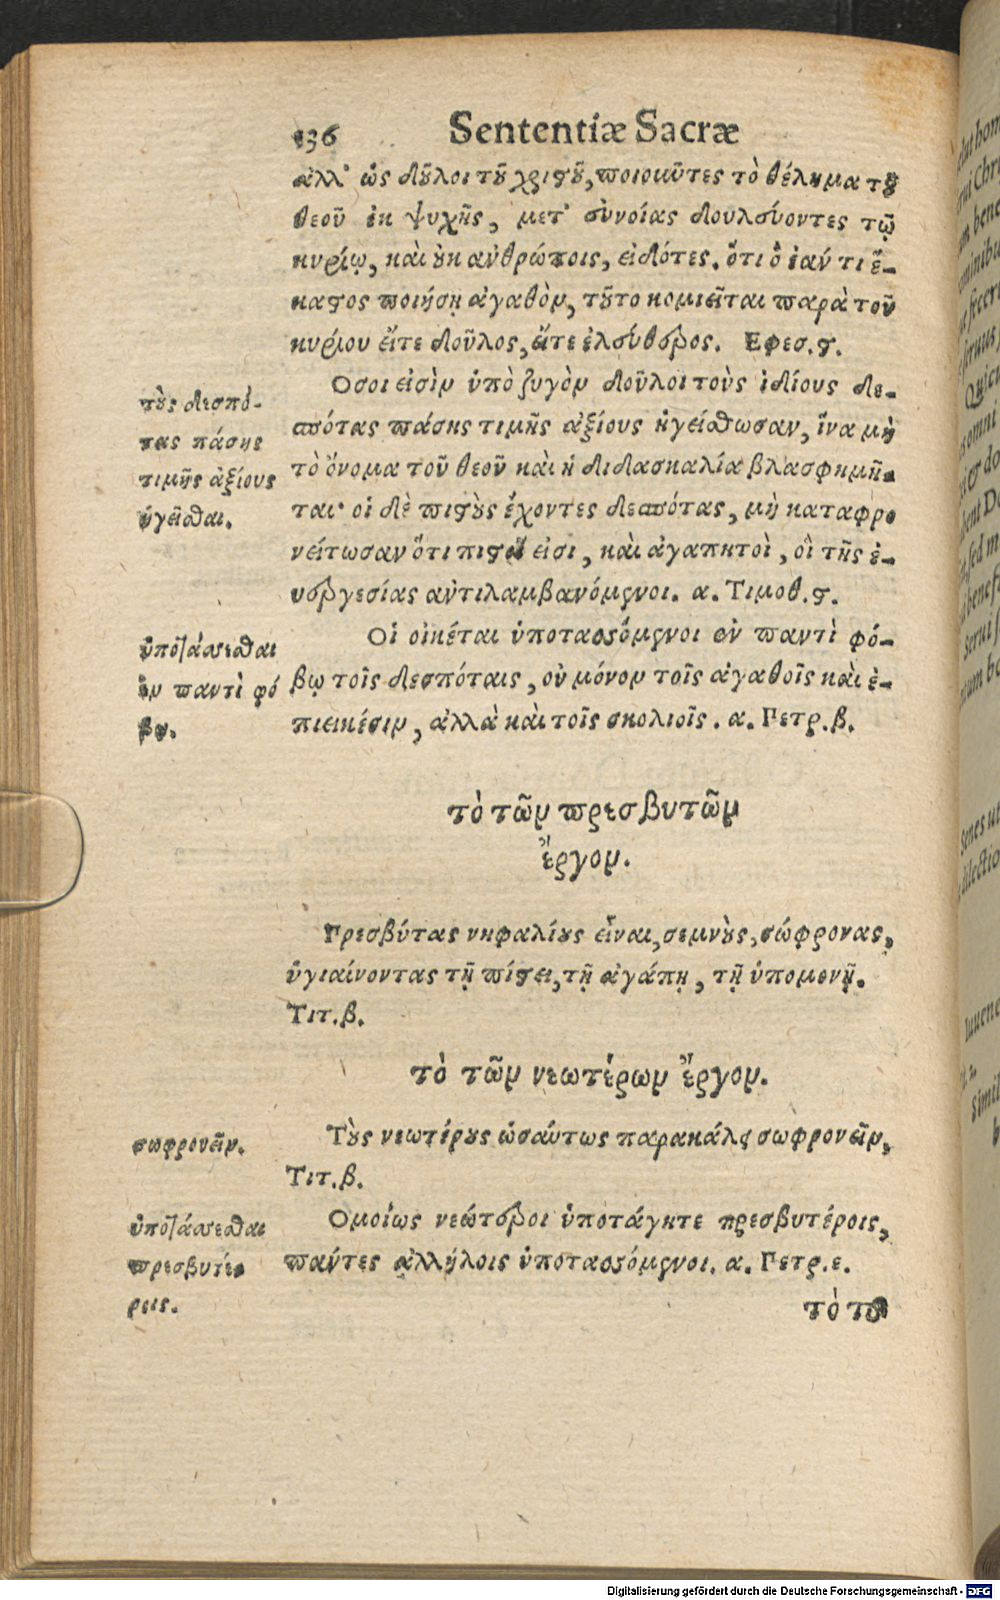 136 Sententiæ Sacræ
ἀλλ' ὡς δοῦλοι τοῦ χριστοῦ, ποιοῦντες τὸ θέλημα τοῦ
θεοῦ ἐκ ψυχῆς, μετ' εὐνοίας δουλεύοντες τῷ
κυρίῳ, καὶ οὐκ ἀνθρώποις, εἰδότες. ὅτι ὃ ἐάν τι ἕ-
καστος ποιήσῃ ἀγαθὸν, τοῦτο κομιεῖται παρὰ τοῦ
κυρίου εἴτε δοῦλος, εἴτε ἐλεύθερος. Εφεσ.ϛ.
τοὺς δεσπό-
τας πάσης
τιμῆς ἀξίους
ἡγεῖσθαι.
Οσοι εἰσὶν ὑπὸ ζυγὸν δοῦλοι τοὺς ἰδίους δε-
σπότας πάσης τιμῆς ἀξίους ἡγείσθωσαν, ἵνα μὴ
τὸ ὄνομα τοῦ θεοῦ καὶ ἡ διδασκαλία βλασφημῆ-
ται· οἱ δὲ πιστοὺς ἔχοντες δεσπότας, μὴ καταφρο
νείτωσαν ὅτι πιστοί εἰσι, καὶ ἀγαπητοὶ, οἳ τῆς ἐ-
υεργεσίας αὐτιλαμβανόμενοι. α. Τιμοθ.ϛ.
ὑποτάσσεσθαι
ἐν παντὶ φό
βῳ.
Οἱ οἰκέται ὑποτασσόμενοι ἐν παντὶ φό-
βῳ τοῖς δεσπόταις, οὐ μόνον τοῖς ἀγαθοῖς καὶ ἐ-
πιεικέσιν, ἀλλὰ καὶ τοῖς σκολιοῖς. α. Πετρ.β.
τὸ τῶν πρεσβυτῶν
ἔργον.
Πρεσβύτας νηφαλίους εἶναι, σεμνοὺς, σώφρονας,
ὑγιαίνοντας τῇ πίστει, τῇ ἀγάπῃ, τῇ ὑπομονῇ.
Τιτ.β.
τὸ τῶν νεωτέρων ἔργον.
σωφρονεῖν.
Τοὺς νεωτέρους ὡσαύτως παρακάλει σωφρονεῖν,
Τιτ.β.
ὑποτάσσεσθαι
πρεσβυτέ
ροις.
Ομοίως νεώτεροι ὑποτάγητε πρεσβυτέροις,
πάντες ἀλλήλοις ὑποτασσόμενοι. α. Πετρ.ε.
τὸ τῶ
Digitalisierung gefördert durch die Deutsche Forschungsgemeinschaft - DFG